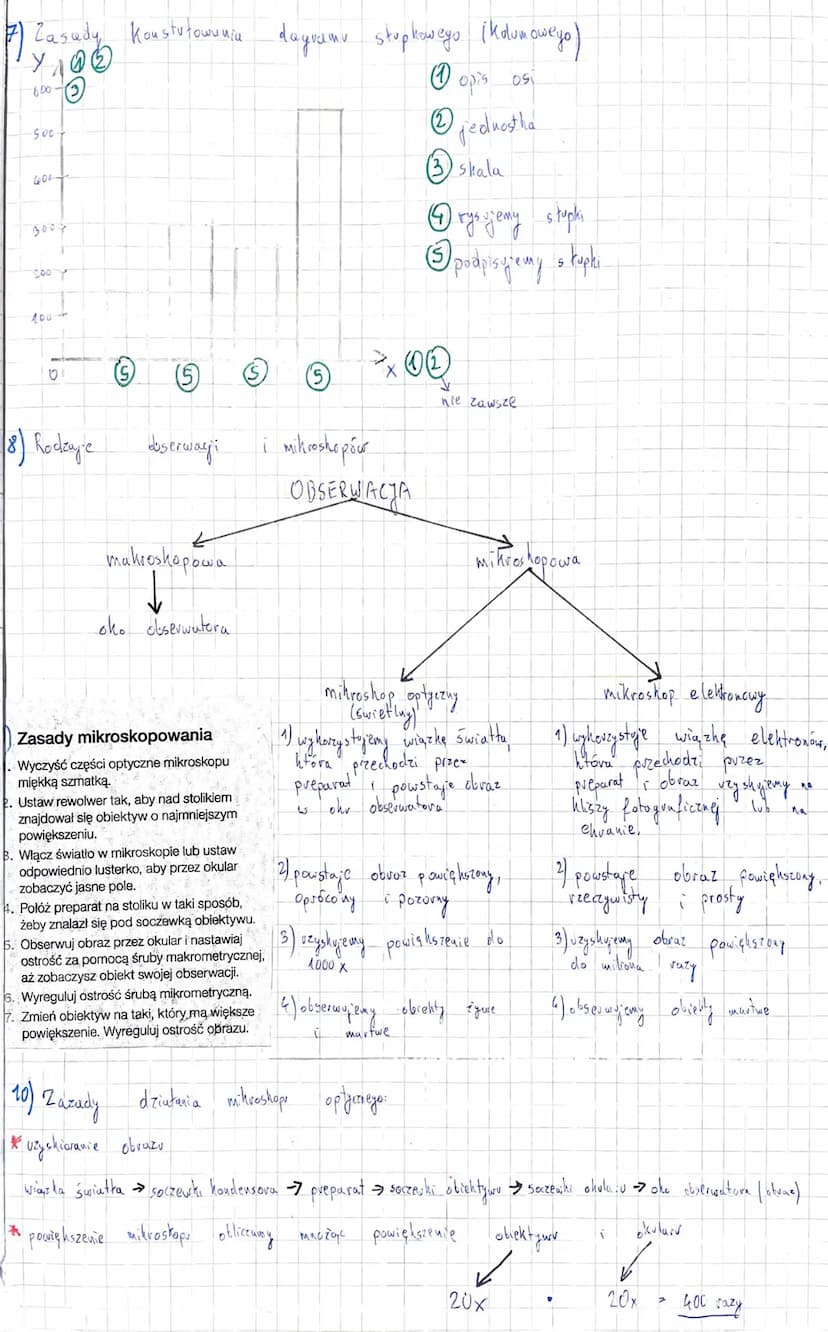 7) Zasady konstułowania dagramu słupkowego (kolumowego)
Y 1 2
600 3
500
400
300
200
100
0
5 5 5 5
x 1 2
nie zawsze
1 opis osi
2 jednostka
3 skala
4 rysujemy słupki
5 podpisujemy słupki
8) Rodzaje obserwacji i mikroskopów
OBSERWACJA
makroskopowa
mikroskopowa
oko obserwatora
mikroskop optyczny
(świetlny)
1) wykorzystujemy wiązkę światła,
która przechodzi przez
preparat i powstaje obraz
w oku obserwatora
2) powstaje obraz powiększony,
odwrócony i pozorny
3) uzyskujemy powiększenie do
1000 x
4) obserwujemy obiekty żywe
i martwe
mikroskop elektronowy
1) wykorzystuje wiązkę elektronów,
która przechodzi przez
preparat i obraz uzyskujemy na
kliszy fotograficznej lub na
ekranie.
2) powstaje obraz powiększony,
rzeczywisty i prosty
3) uzyskujemy obraz powiększony
do miliona razy
4) obserwujemy obiekty martwe
) Zasady mikroskopowania
. Wyczyść części optyczne mikroskopu
miękką szmatką.
2. Ustaw rewolwer tak, aby nad stolikiem
znajdował się obiektyw o najmniejszym
powiększeniu.
3. Włącz światło w mikroskopie lub ustaw
odpowiednio lusterko, aby przez okular
zobaczyć jasne pole.
4. Połóż preparat na stoliku w taki sposób,
żeby znalazł się pod soczewką obiektywu.
5. Obserwuj obraz przez okular i nastawiaj
ostrość za pomocą śruby makrometrycznej,
aż zobaczysz obiekt swojej obserwacji.
6. Wyreguluj ostrość śrubą mikrometryczną.
7. Zmień obiektyw na taki, który ma większe
powiększenie. Wyreguluj ostrość obrazu.
10) Zazady działania mikroskopu optycznego:
* uzyskiwanie obrazu
wiązka światła → soczewki kondensora → preparat → soczewki obiektywu → soczewki okularu → oko obserwatora (obraz)
* powiększenie mikroskopu obliczamy mnożąc powiększenie obiektywu i okularu
20x · 20x = 400 razy